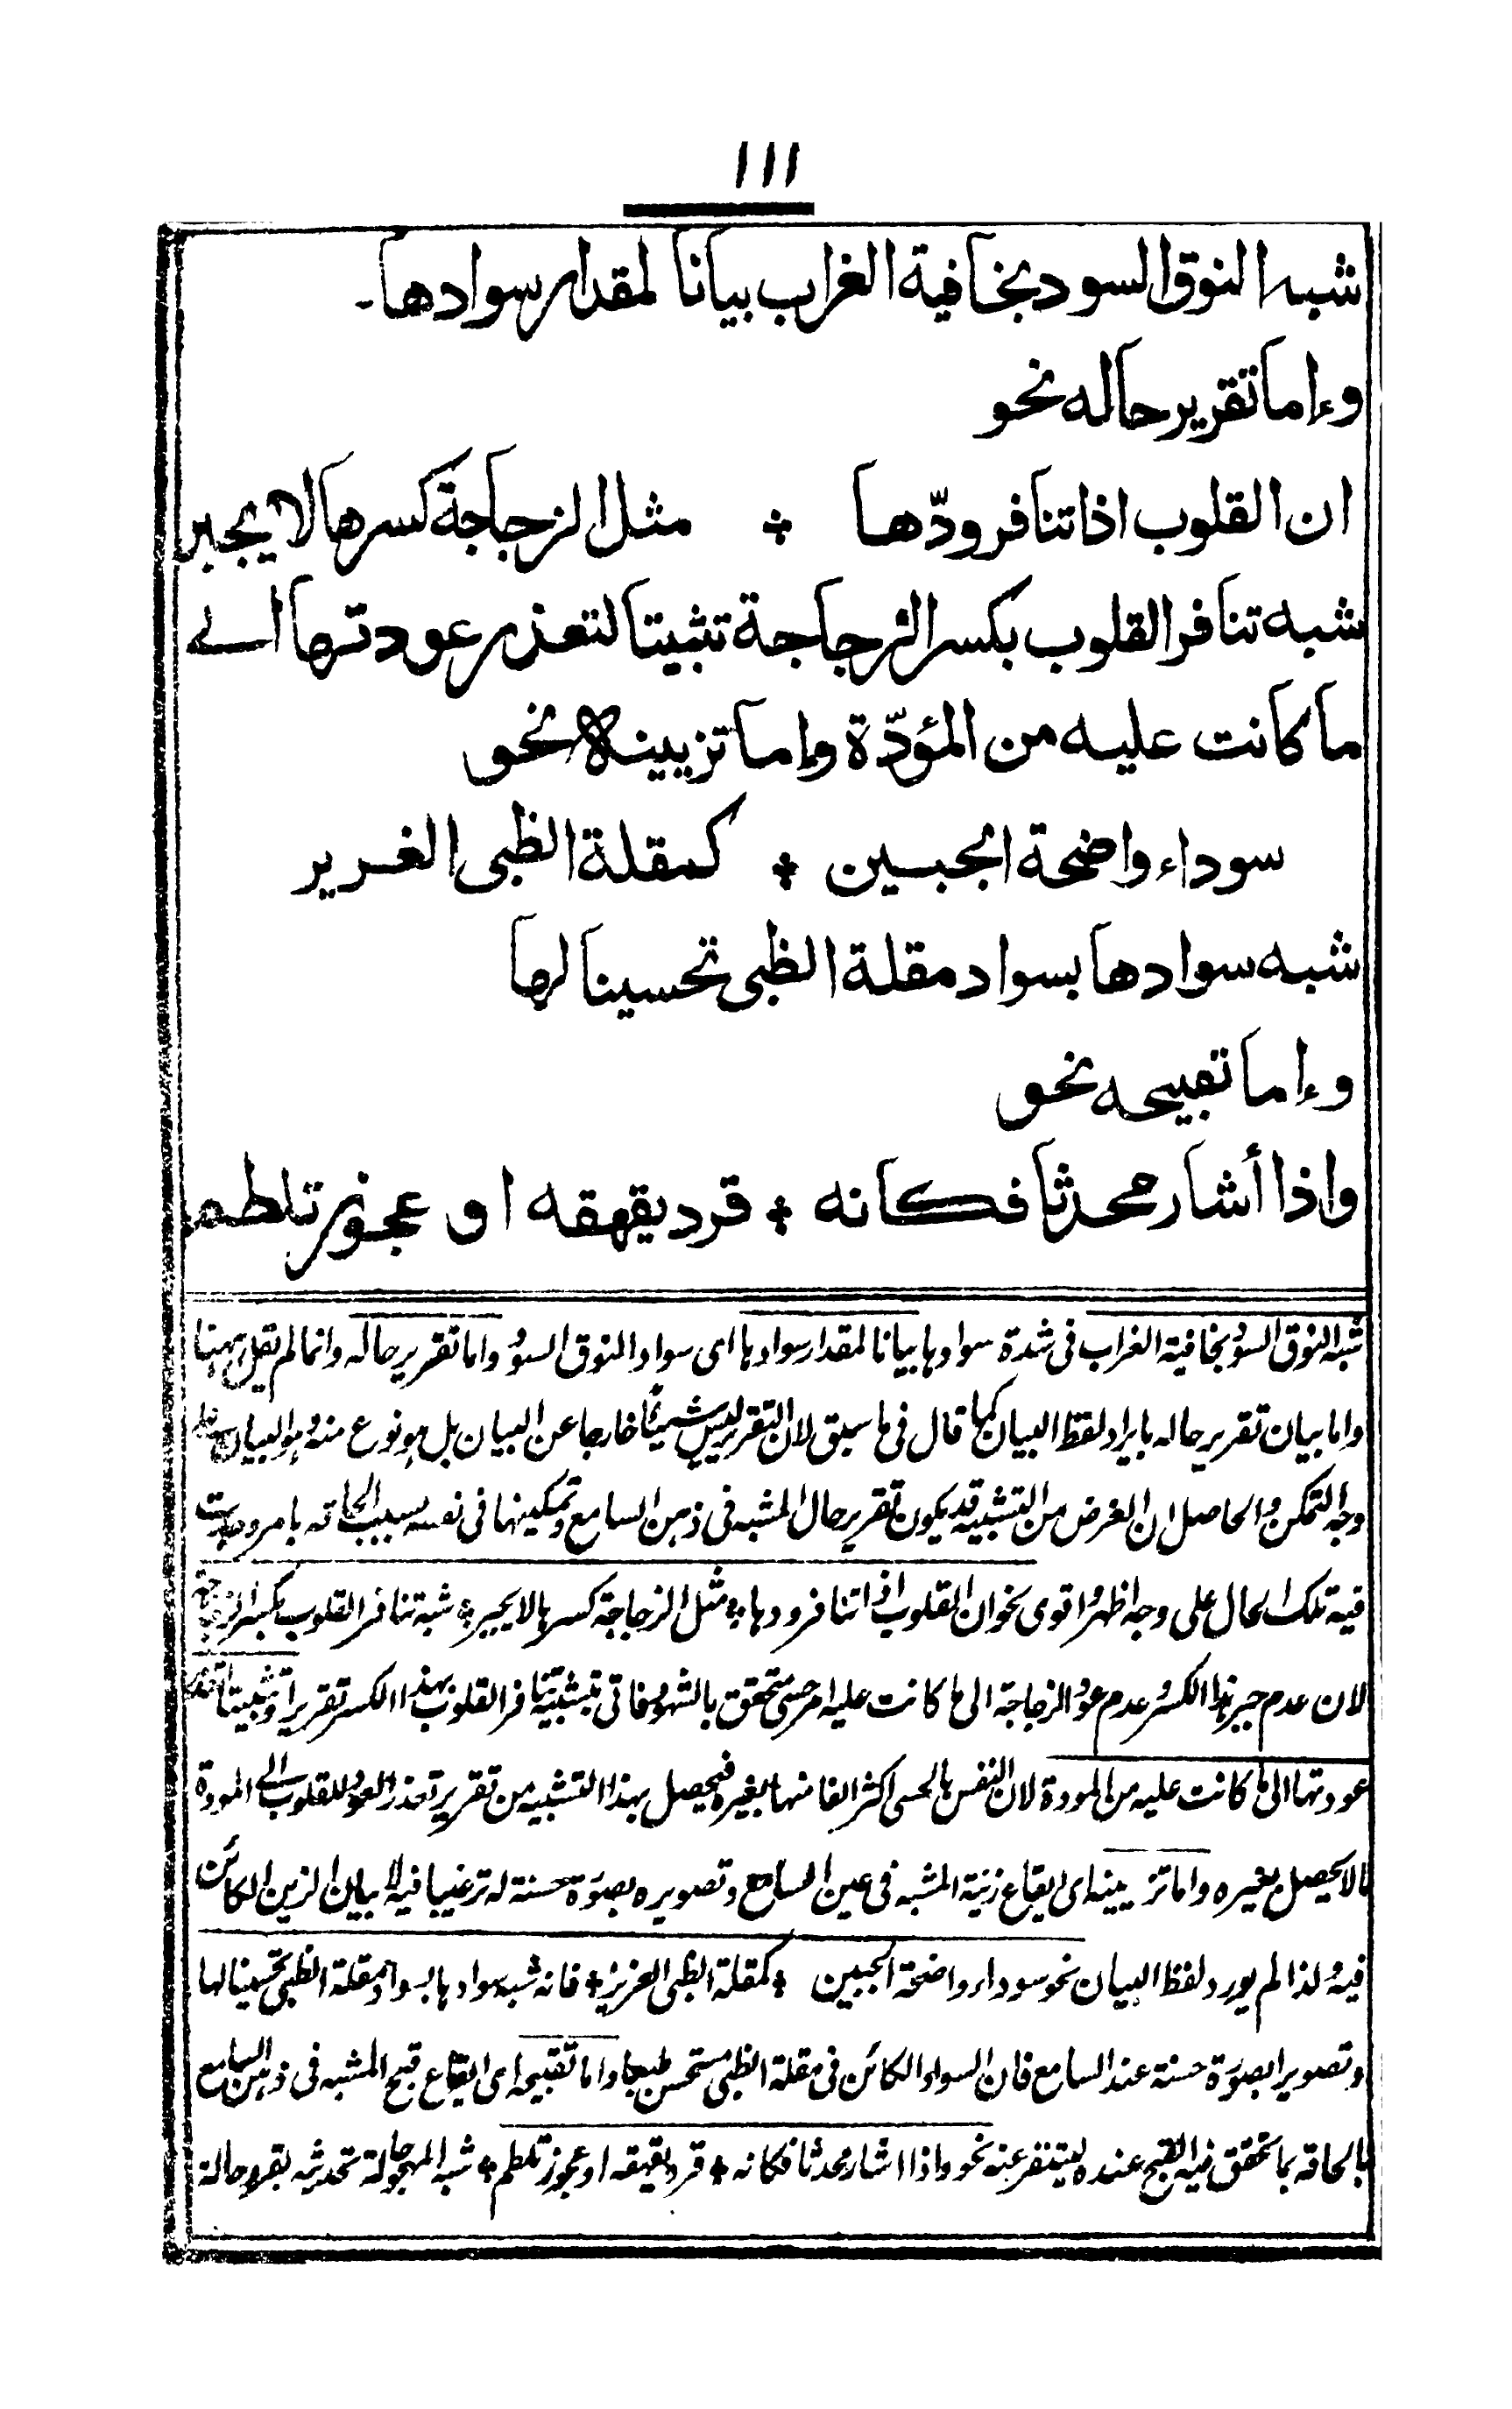 ١١١
شبه النوق السود بخافية الغراب بيانا لمقدار سوادها۔
وإما تقرير حاله نحو
ان القلوب اذا تنافر ودّها * مثل الزجاجة كسرها لا يجبر
شبه تنافر القلوب بكسر الزجاجة تثبيتا لتعذر عودتها الے
ما كانت عليه من المؤدّة وإما تزيينه نحو
سوداء واضحة الجبين * كمقلة الظبى الغرير
شبه سوادها بسواد مقلة الظبى تحسينا لها
وإما تقبيحه نحو
واذا أشار محدثا فكانه * قرد يقهقه او عجوز تلطم
شبه النوق السود بخافية الغراب فى شدة سوادها بيانا لمقدار سوادها اى سواد النوق السود واما تقرير حاله وانما لم يقل ههنا
واما بيان تقرير حاله بايراد لفظ البيان كما قال فى ما سبق لان التقرير ليس شيئا خارجا عن البيان بل هو نوع منه وهو البيان على
وجه التمكن والحاصل ان الغرض من التشبيه قد يكون تقرير حال المشبه فى ذهن السامع وتمكينها فى نفسه بسبب الحاقه بامر وجدت
فيه تلك الحال على وجه اظهر واقوى نحو ان القلوب اذا تنافر ودها * مثل الزجاجة كسرها لا يجبر * شبه تنافر القلوب بكسر الزجاجة
لان عدم جبر هذا الكسر وعدم عود الزجاجة الى ما كانت عليه امر حسى متحقق بالشهود فاتى بتشبيه تنافر القلوب بهذا الكسر تقريرا وتثبيتا لتعذر
عودتها الى ما كانت عليه من المودة لان النفس بالحسى اكثر الفا منها بغيره فيحصل بهذا التشبيه من تقرير تعذر العود للقلوب الى المودة
ما لا يحصل بغيره واما تزيينه اى ايقاع زينة المشبه فى عين السامع وتصويره بصورة حسنة له ترغيبا فيه لا بيان الزين الكائن
فيه ولذا لم يورد لفظ البيان نحو سوداء واضحة الجبين * كمقلة الظبى الغرير * فانه شبه سوادها بسواد مقلة الظبى تحسينا لها
وتصويرا بصورة حسنة عند السامع فان السواد الكائن فى مقلة الظبى مستحسن طبعا واما تقبيحه اى ايقاع قبح المشبه فى ذهن السامع
بالحاقه بما يتحقق فيه القبح عنده ليتنفر عنه نحو واذا اشار محدثا فكانه * قرد يقهقه او عجوز تلطم * شبه المهجو حالة تحديثه بقرد حالة